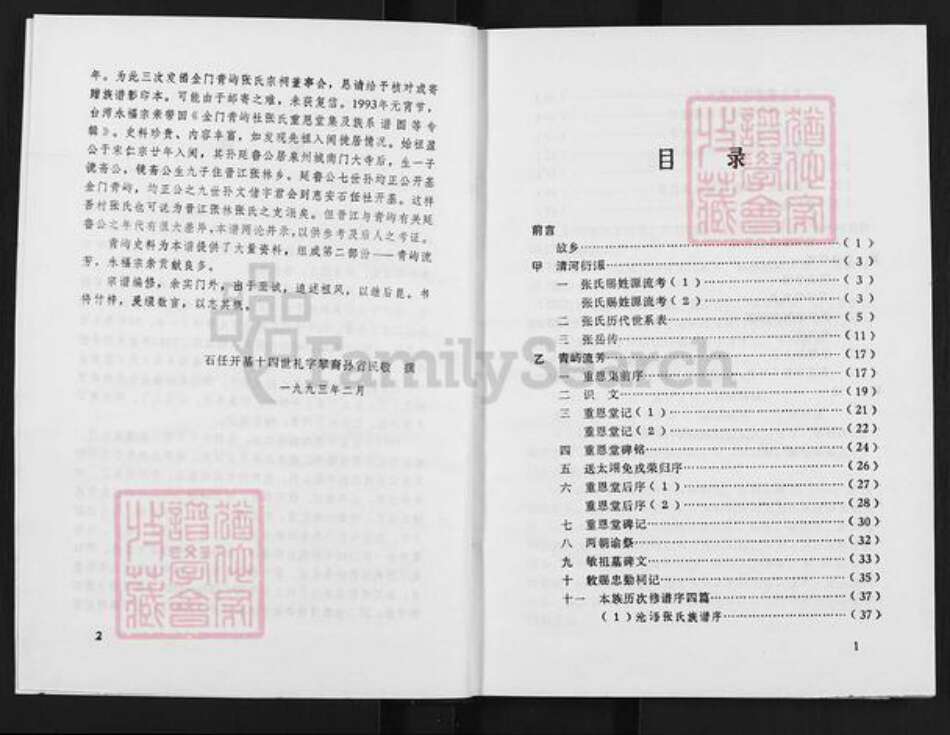 年。为此三次发函金门青屿张氏宗祠董事会，恳请给予核对或寄
赠族谱影印本。可能由于邮寄之难，未获复信。1993年元宵节，
台湾永福宗亲带回《金门青屿社张氏重恩堂集及族系谱图等专
辑》。史料珍贵、内容丰富，如发现先祖入闽徙居情况。始祖
公于宋仁宗廿年入闽，其孙延鲁公居泉州城南门大寺后，生一子
镜斋公，镜斋公生九子住晋江张林乡。延鲁公七世孙均正公开基
金门青屿，均正公之九世孙文信字君会到惠安石任社开基。这样
吾村张氏也可说为晋江张林张氏之支派矣。但晋江与青屿有关延
鲁公之年代有很大差异，本谱两论并录，以供参考及后人之考证。
青屿史料为本谱提供了大量资料，组成第二部份——青屿流
芳。永福宗亲贡献良多。
宗谱编修，余实门外，由于至诚，追述祖风，以继后昆。书
将付梓，爰缀数言，以志其概。
石任开基十四世礼字辈裔孙省民敬 撰
一九九三年二月
2
目 录
前言
故乡（1）
甲 清河衍源（3）
一 张氏赐姓源流考（1）（3）
张氏赐姓源流考（2）（3）
二 张氏历代世系表（5）
三 张岳传（11）
乙 青屿流芳（17）
一 重恩集前序（17）
二 识 文（19）
三 重恩堂记（1）（21）
重恩堂记（2）（22）
四 重恩堂碑铭（24）
五 送太翊免戎荣归序（26）
六 重恩堂后序（1）（27）
重恩堂后序（2）（28）
七 重恩堂碑记（30）
八 两朝谕祭（32）
九 敏祖墓碑文（33）
十 敕赐忠勤祠记（35）
十一 本族历次修谱序四篇（37）
（1）沧浯张氏族谱序（37）
1
猶他家
譜學會
收藏
猶他家
譜學會
收藏
FamilySearch